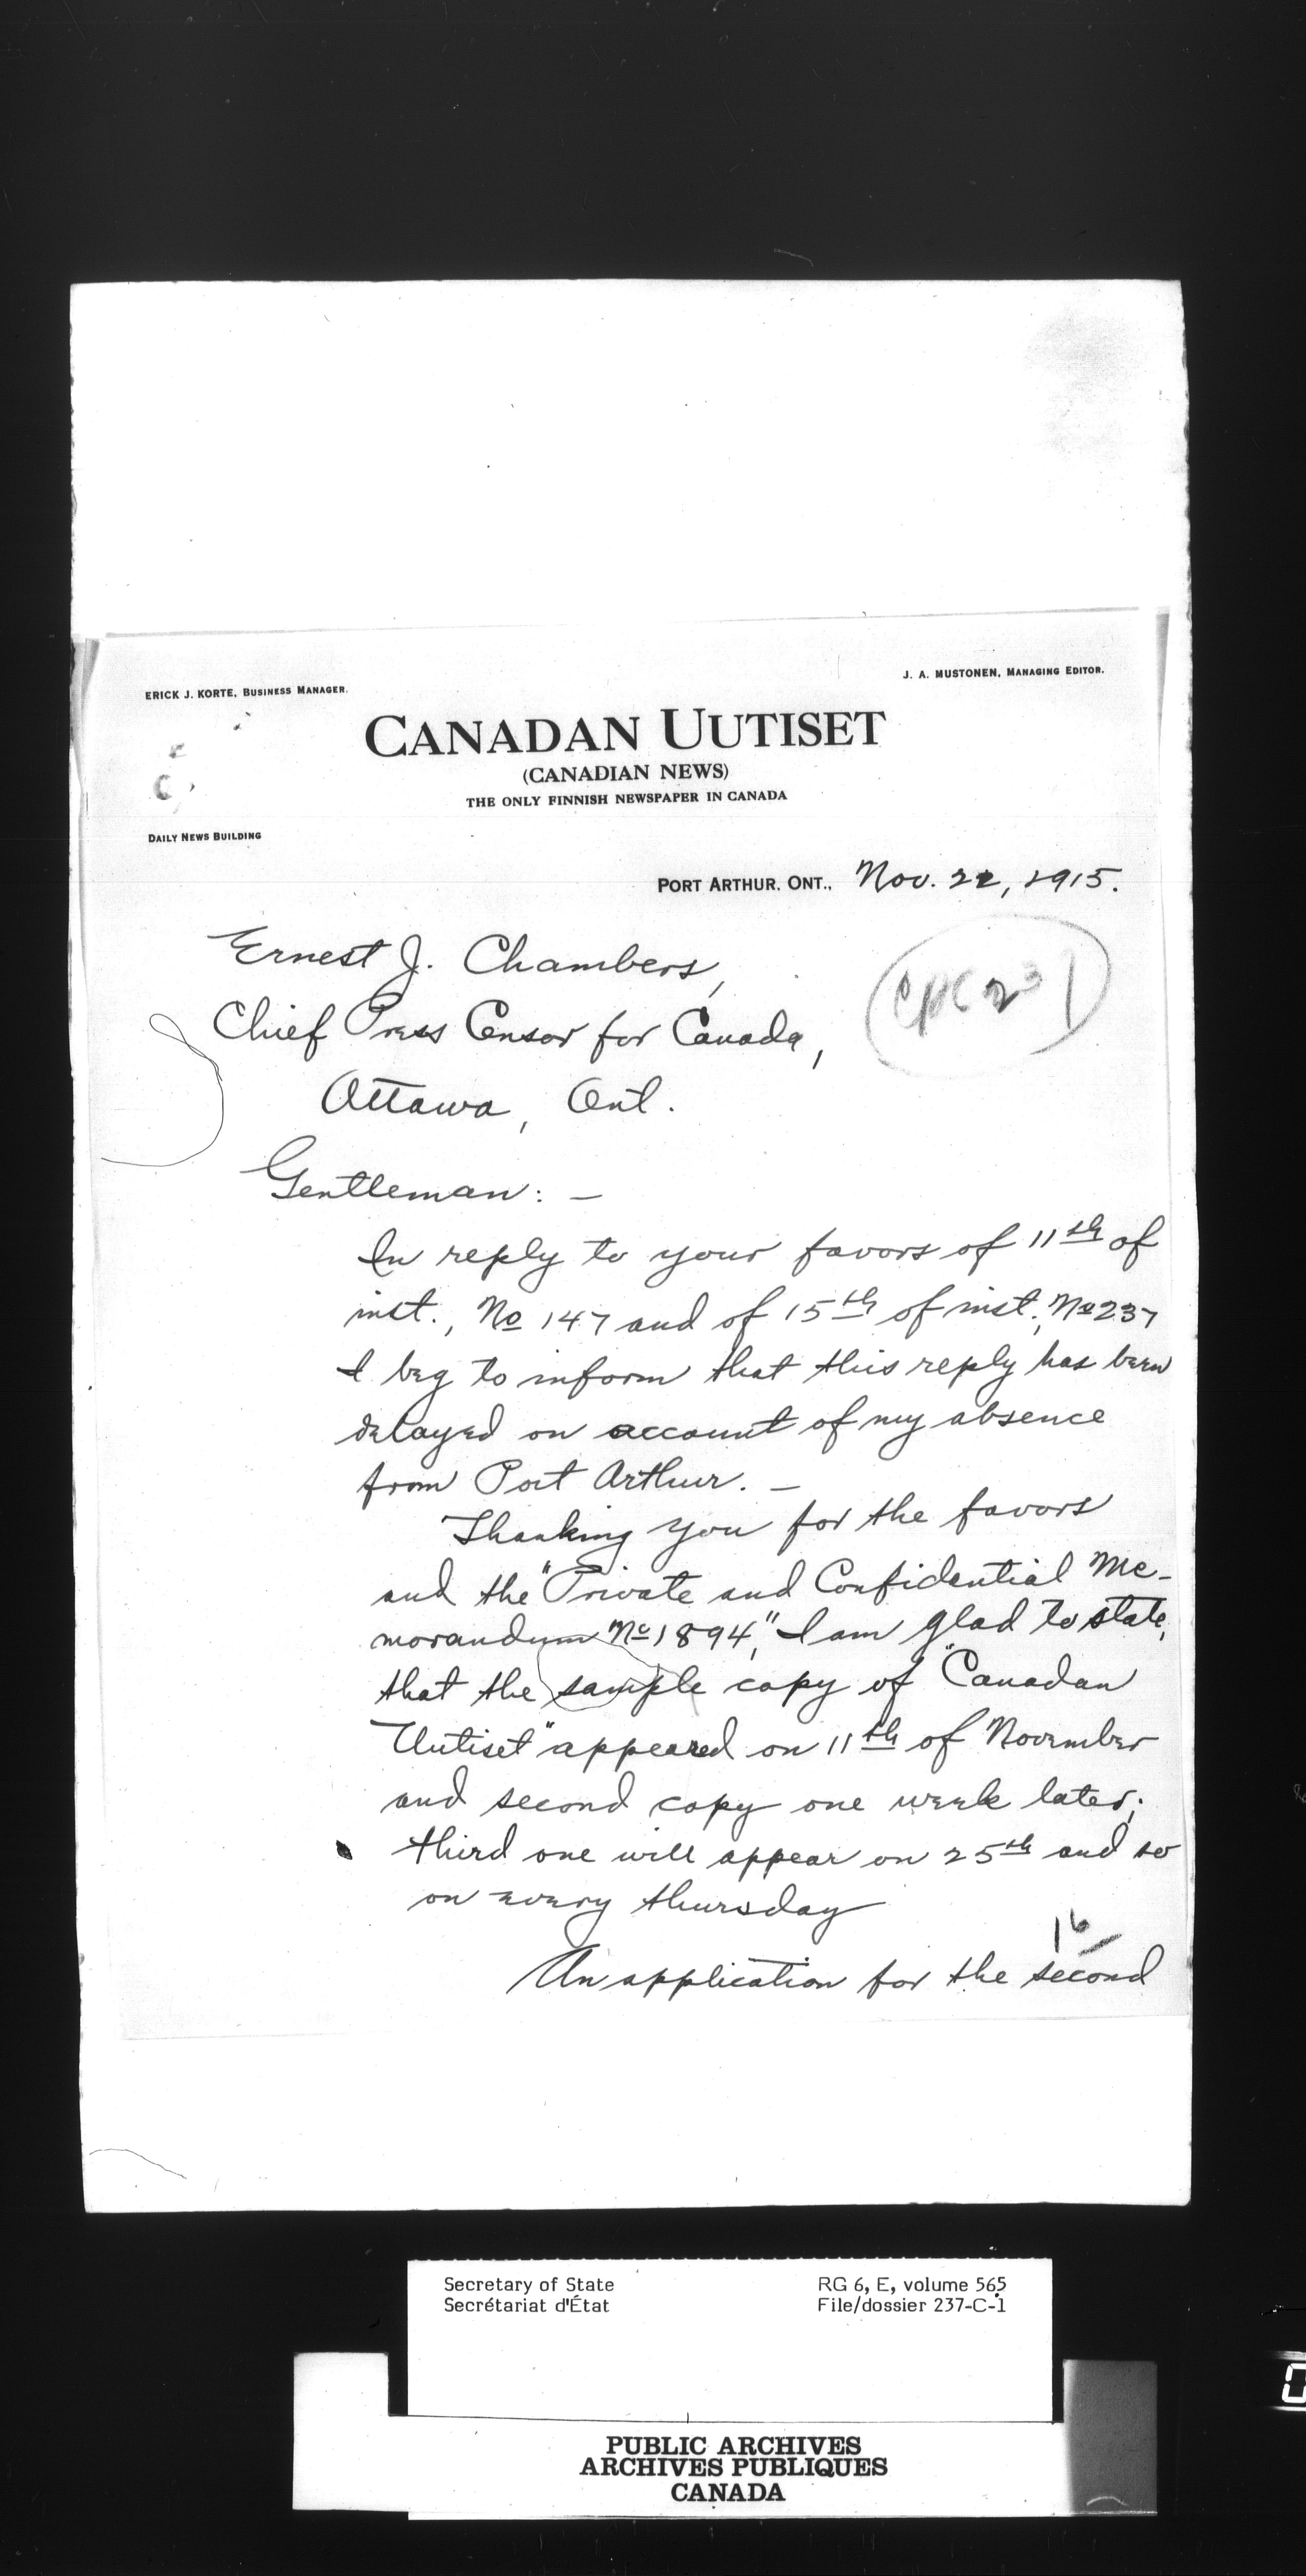 ERICK J. KORTE, BUSINESS MANAGER.
J. A. MUSTONEN, MANAGING EDITOR.
CANADAN UUTISET
(CANADIAN NEWS)
THE ONLY FINNISH NEWSPAPER IN CANADA
DAILY NEWS BUILDING
PORT ARTHUR, ONT., Nov. 22, 1915.
Ernest J. Chambers,
Chief Press Censor for Canada,
Ottawa, Ont.
Gentleman: —
In reply to your favors of 11th of
inst., No 147 and of 15th of inst., No 237
I beg to inform that this reply has been
delayed on account of my absence
from Port Arthur. —
Thanking you for the favors
and the "Private and Confidential Me-
morandum No 1894," I am glad to state,
that the sample copy of "Canadan
Uutiset" appeared on 11th of November
and second copy one week later;
third one will appear on 25th and so
on every thursday
An application for the second
16
Secretary of State
Secrétariat d'État
RG 6, E, volume 565
File/dossier 237-C-1
PUBLIC ARCHIVES
ARCHIVES PUBLIQUES
CANADA